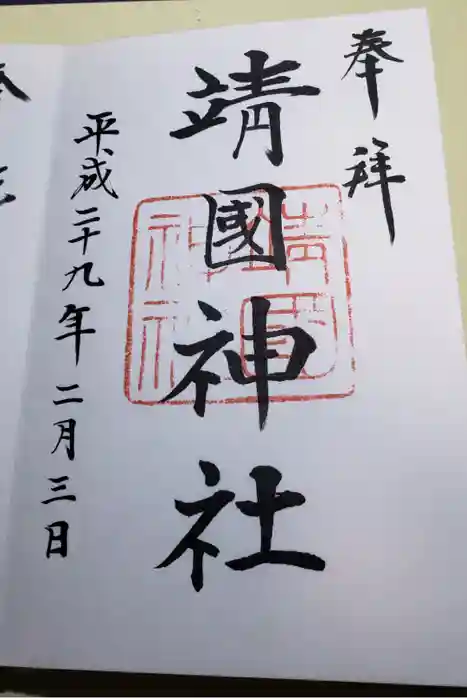 奉拝
靖國神社
靖國
神社
平成二十九年二月三日